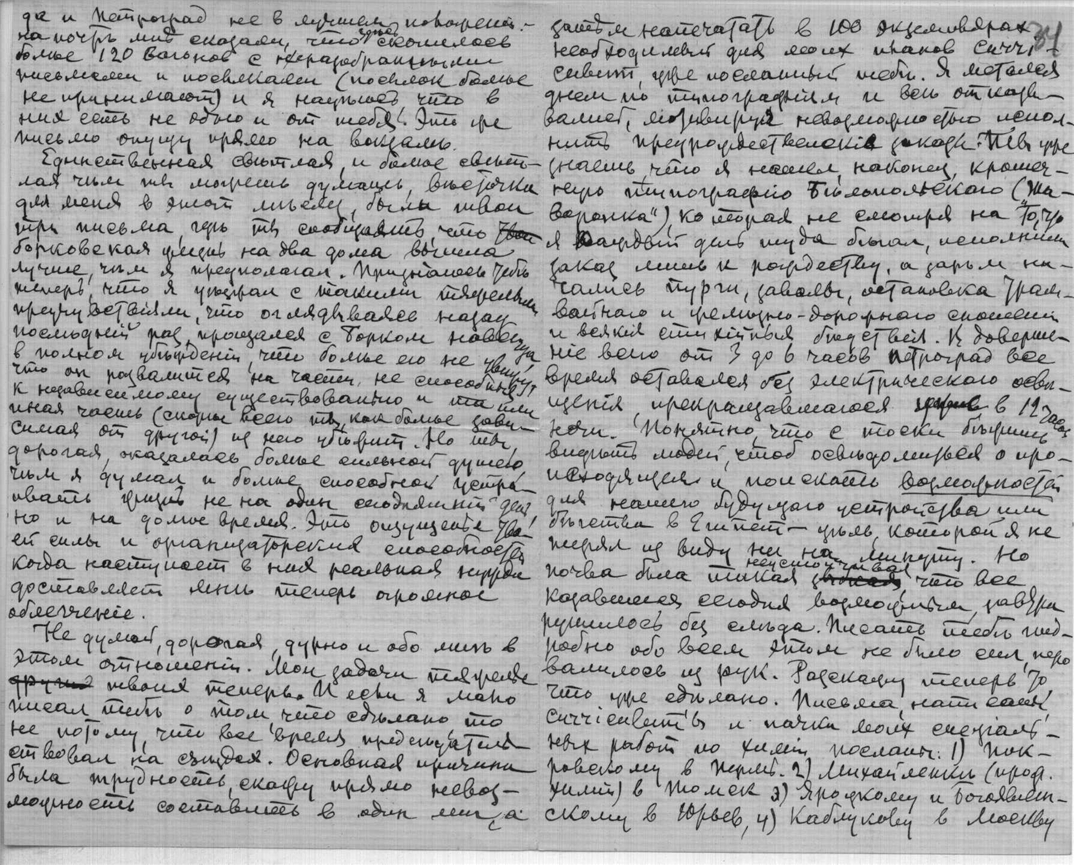 да и Петроград не в лучшем положенi-
на почтѣ мнѣ сказали, что уже скопилось
более 120 вагонов с неразобранными
письмами и посылками (посылок более
не принимают) и я надѣюсь что в
них есть не одно и от тебя. Это же
письмо опущу прямо на вокзалѣ.
Единственная свѣтлая, и более свѣт-
лая чѣм ты можешь думать, вѣсточка
для меня в этот мѣсяц, были твои
три письма, гдѣ ты сообщаешь что
борковская жизнь на два дома вышла
лучше, чѣм я предполагал. Признаюсь тебѣ
теперь, что я уѣзжал с такими тяжелыми
предчувствiями, что оглядываясь назад
последнiй раз, прощался с Борком навсегда
в полном убѣжденiи, что болѣе его не увижу,
что он развалится на части, не способныя
к независимому существованiю и та или
иная часть (скорѣе всего ты, как более зави-
симая от другой) из него убѣжит. Но ты,
дорогая, оказалась более сильной душею,
чѣм я думал и более способной устра-
ивать жизнь не на один сегодняшнiй день,
но и на долгое время. Это ощущенiе тво-
ей силы и организаторских способностей
когда наступает в них реальная нужда
доставляет мнѣ теперь огромное
облегченiе.
Не думай, дорогая, дурно и обо мнѣ в
этом отношенiи. Мои задачи тяжелѣе
твоих теперь. И если я мало
писал тебѣ о том, что сдѣлано то
не потому, что все время предсѣдатель-
ствовал на съѣздах. Основная причина
была трудность, скажу прямо невоз-
можность составить в один мѣсяц а
затѣм напечатать в 100 экземплярах
необходимый для моих планов
уже посланный тебѣ. Я метался
днем по типографiям и всѣ отказы-
вались, мотивируя невозможностью испол-
нить предрождественскiе заказы. Ты уже
знаешь, что я нашел, наконец, крошеч-
ную типографiю Бѣлопольского („Жа-
воронка“) которая не смотря на то, что
я каждый день туда бѣгал, исполнила
заказ лишь к рождеству, а затѣм на-
чались пурги, завалы, остановка трам-
вайного и желѣзно-дорожного сношенiй
и всякiя стихiйныя бѣдствiя. К доверше-
нiю всего от 3 до 6 часов Петроград все
время оставался без электрического освѣ-
щенiя, прекращавшагося в 12 часов
ночи. Понятно, что с тоски бѣжишь
видѣть людей, чтоб освѣдомиться о про-
исходящем и поискать возможностей
для нашего будущаго устройства или
бѣгства в Египет — цѣль, которой я не
терял из виду ни на минуту. Но
почва была такая неустойчивая, что все
казавшееся сегодня возможным, завтра
рушилось без слѣда. Писать тебѣ под-
робно обо всем этом не было сил, перо
валилось из рук. Разскажу теперь то,
что уже сдѣлано. Письма, написаны,
и пачки моих спецiаль-
ных работ по химiи посланы: 1) Пок-
ровскому в Пермь. 2) Михайленкѣ (проф.
химiи) в Томск 3) Яроцкому и Богоявлен-
скому в Юрьев, 4) Каблукову в Москву
34